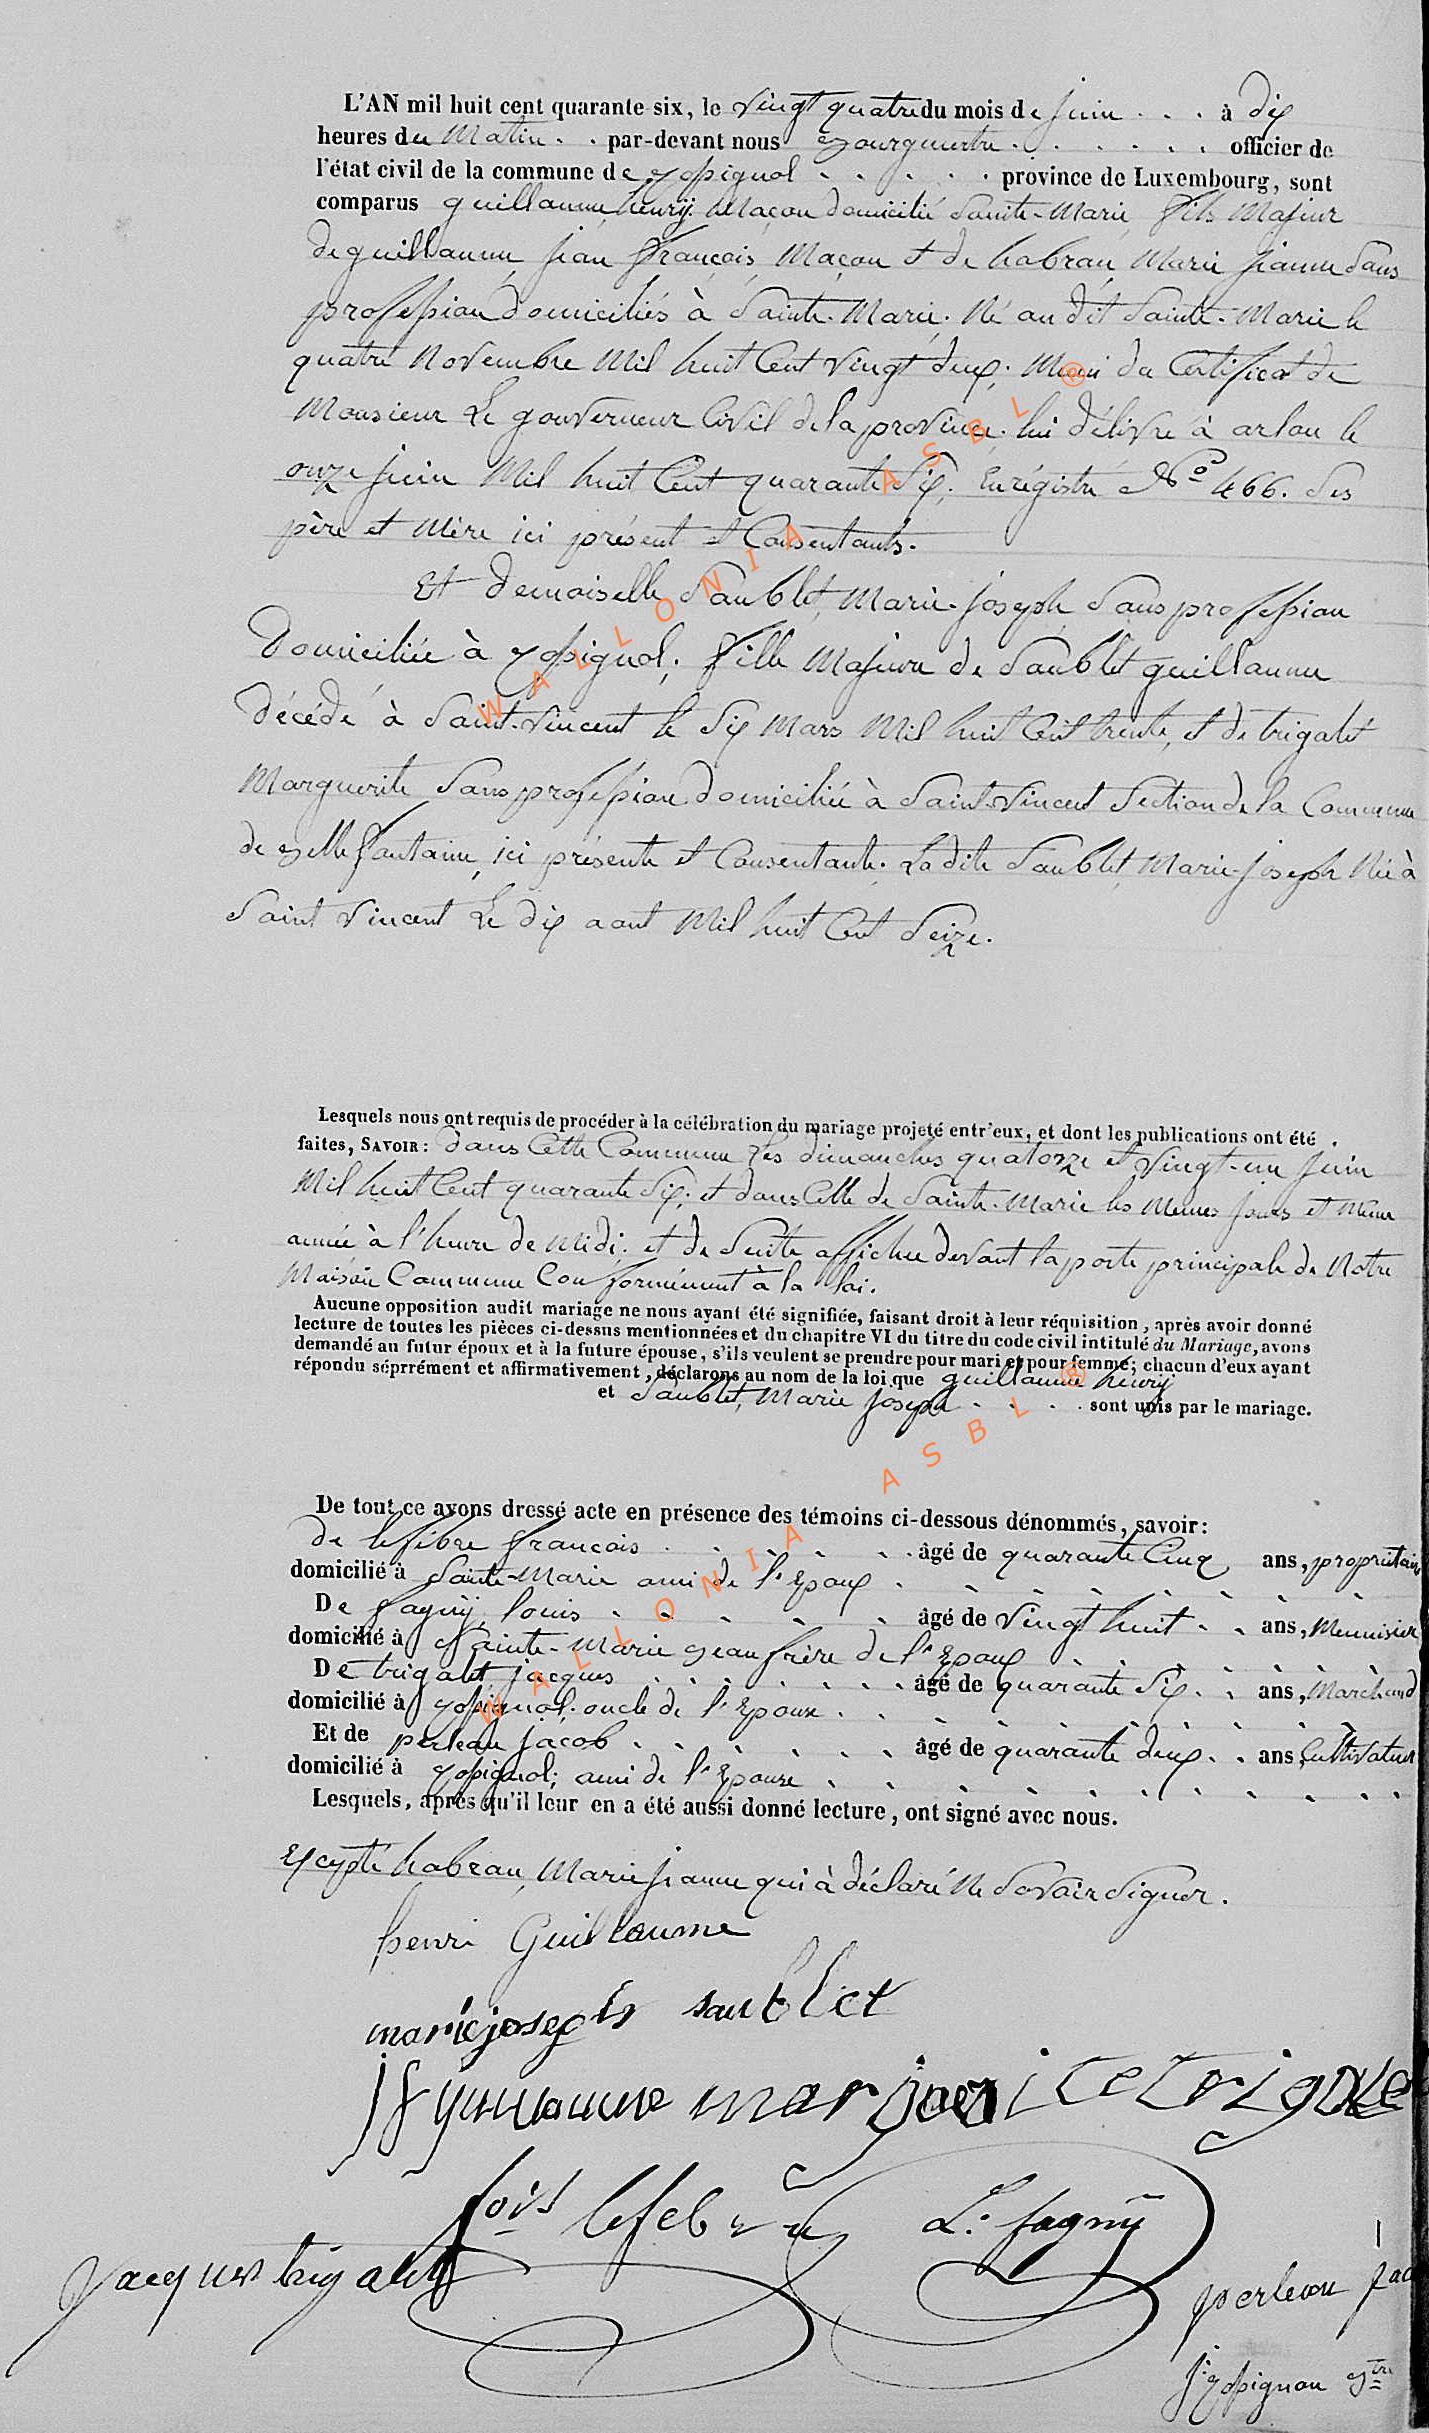 L'AN mil huit cent quarante six, le vingt quatre du mois de juin . . . à dix
heures du Matin . . par-devant nous Bourguestre . . . . . . officier de
l'état civil de la commune de . . . . . province de Luxembourg, sont
comparus guillaume henrÿ Maçon domicilié Sainte-Marie, fils Majeur
de guillaume, jean françois, Maçon et de habran, Marie jeanne Sans
profession domiciliés à Sainte-Marie. Né au dit Sainte-Marie le
quatre Novembre Mil huit Cent vingt deux; Muni du Certificat de
Monsieur Le gouverneur Civil de la province lui délivré à arlon le
onze juin Mil huit Cent quarante Six; Enrégistré No 466. Ses
père et Mère ici présent et Consentants.
Et demoiselle Saublet, Marie-joseph Sans profession
Domiciliée à ; fille Majeure de Saublet guillaume
décédé à Saint-Vincent le Six Mars Mil huit Cent trente, et de trigalet
Marguerite Sans profession domiciliée à Saint-Vincent Section de la Commune
de Bellefontaine, ici présente et Consentante. La dite Saublet, Marie-joseph Née à
Saint Vincent Le dix aout Mil huit Cent Seize.
Lesquels nous ont requis de procéder à la célébration du mariage projeté entr'eux, et dont les publications ont été
faites, SAVOIR: dans Cette Commune Les dimanches quatorze et Vingt-un juin
Mil huit Cent quarante Six; et dans Celle de Sainte-Marie les Memes jours et Meme
année à l'heure de Midi; et de Suite affichee devant la porte principale de Notre
Maison Commune Conformément à la loi.
Aucune opposition audit mariage ne nous ayant été signifiée, faisant droit à leur réquisition, après avoir donné
lecture de toutes les pièces ci-dessus mentionnées et du chapitre VI du titre du code civil intitulé du Mariage, avons
demandé au futur époux et à la future épouse, s'ils veulent se prendre pour mari et pour femme; chacun d'eux ayant
répondu séprrément et affirmativement, déclarons au nom de la loi que guillaume henrÿ
et Saublet, Marie joseph . . . . sont unis par le mariage.
De tout ce avons dressé acte en présence des témoins ci-dessous dénommés, savoir:
de lefèbre francois . . . . . . . âgé de quarante Cinq ans, propriétaire
domicilié à Sainte-Marie ami de l'Epoux . . . . . . . .
De fagnÿ, louis . . . . . . âgé de vingt huit . . ans, Menuisier
domicilié à Sainte-Marie Beau frère de l'Epoux . . . . . .
De trigalet jacques . . . . . . . âgé de quarante Six . . ans, Marchand
domicilié à ; oncle de l'Epouse . . . . . . . . .
Et de perleau jacob . . . . . . âgé de quarante deux . . ans, Cultivateur
domicilié à ; ami de l'Epouse . . . . . . . . . .
Lesquels, après qu'il leur en a été aussi donné lecture, ont signé avec nous.
Excepté habran, Marie jeanne qui à déclaré Ne Savoir Signer.
henri Guillaume
marie joseph saublet
jf guillaume
fois lefebvre L. fagnÿ
jacques trigalet
perleau
WALLONIA ASBL ®
WALLONIA ASBL ®